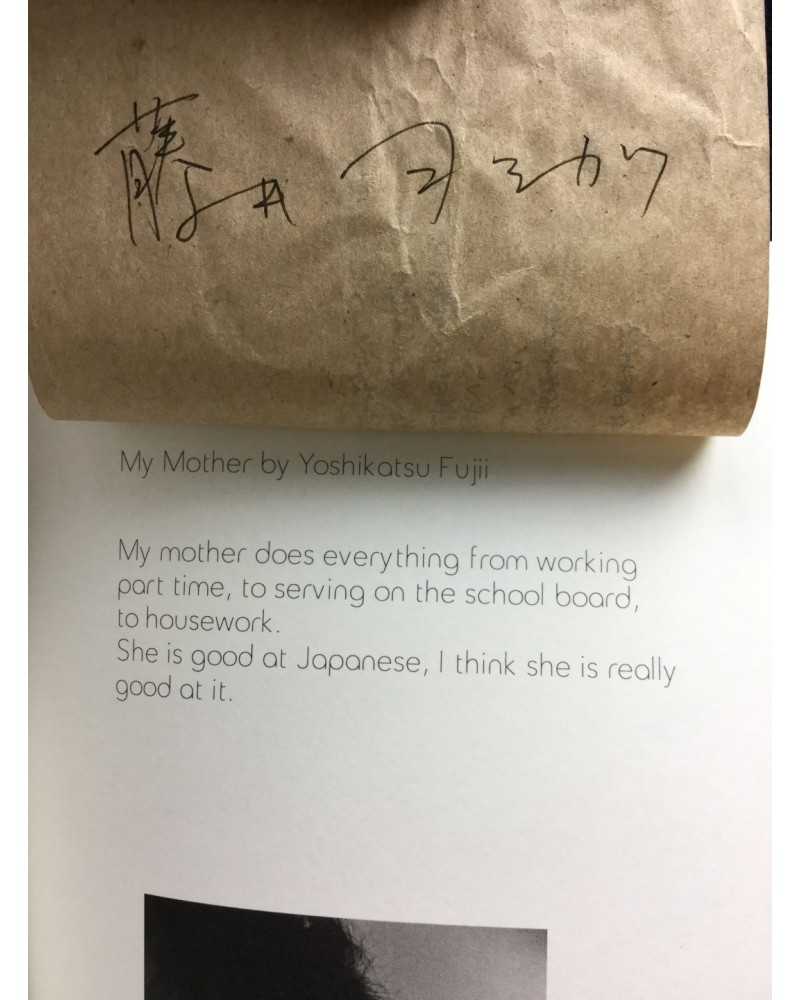 藤井ヨシカツ
My Mother by Yoshikatsu Fujii
My mother does everything from working
part time, to serving on the school board,
to housework.
She is good at Japanese, I think she is really
good at it.